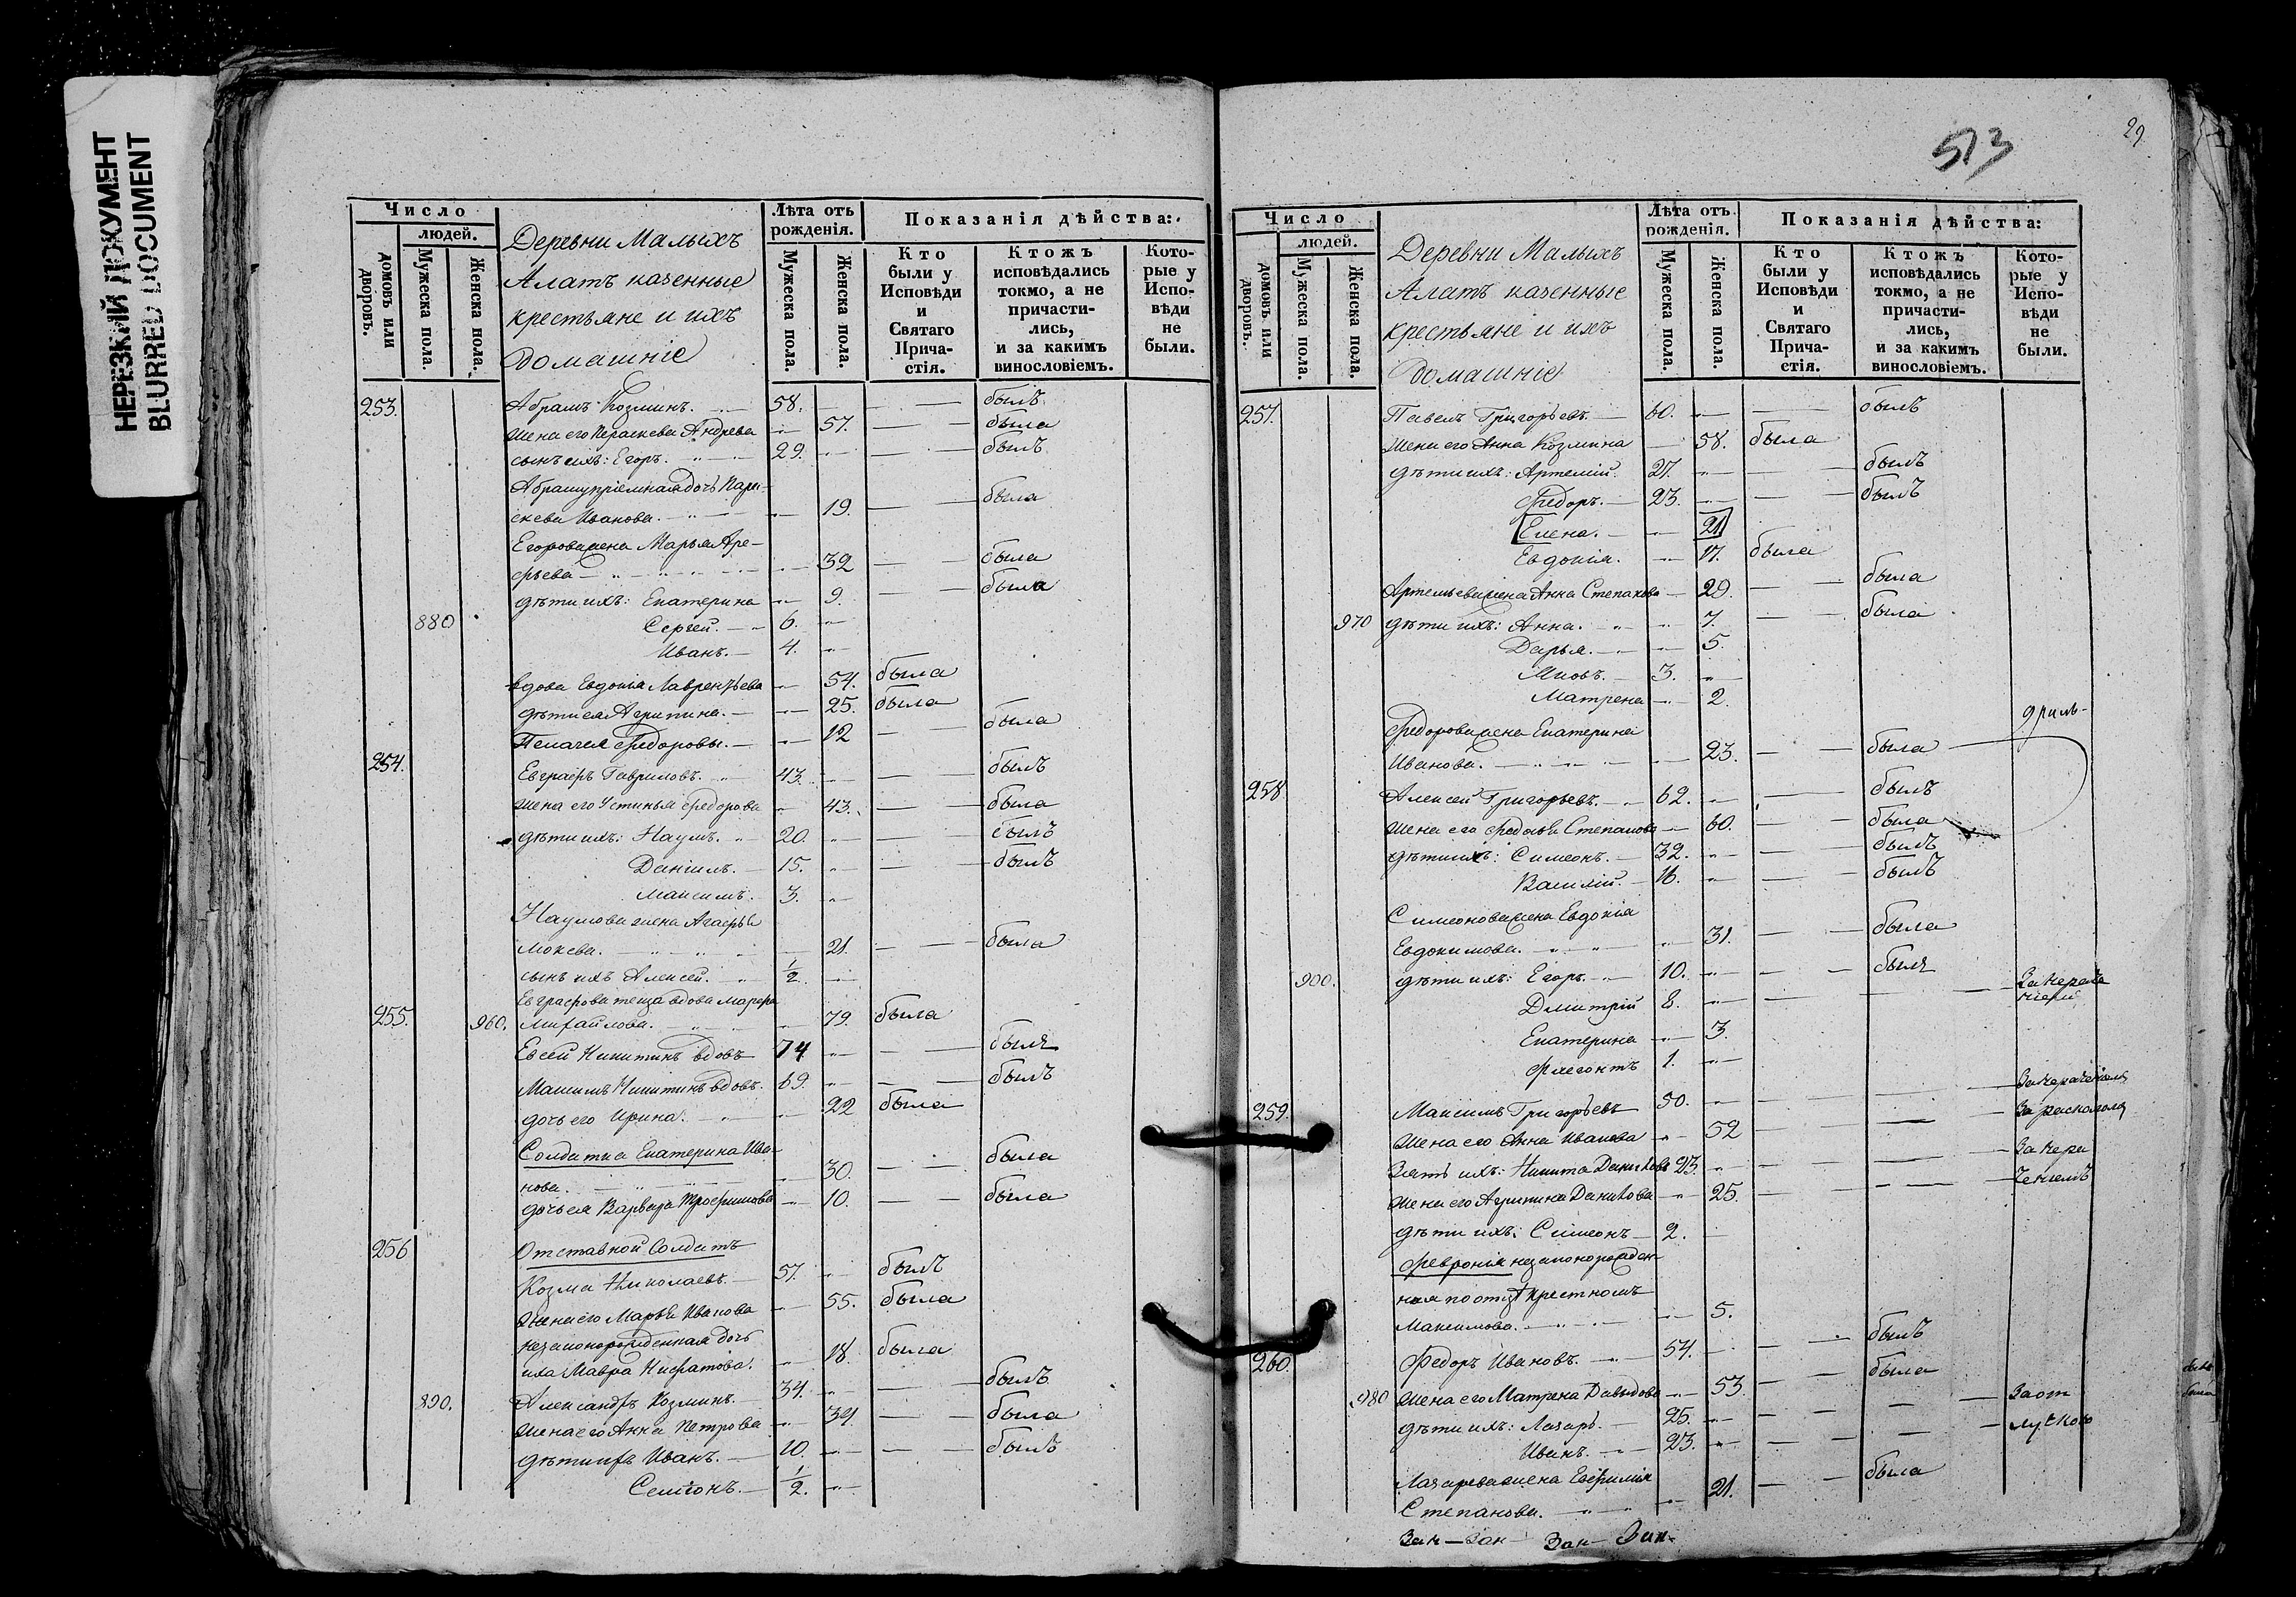 НЕРЕЗКИЙ ДОКУМЕНТ
BLURRED DOCUMENT
Число
людей.
домовъ или дворовъ.
Мужеска пола.
Женска пола.
Деревни Малыхъ
Алатъ казенные
крестьяне и ихъ
домашніе
Лѣта отъ рожденія.
Мужеска пола.
Женска пола.
Показанія дѣйства:
Кто были у Исповѣди и Святаго Прича-стія.
Ктожъ исповѣдались токмо, а не причасти-лись, и за какимъ винословіемъ.
Кото-рые у Испо-вѣди не были.
253. Абрамъ Козминъ. 58. былъ
жена его Параскева Андрева 57. была
сынъ ихъ: Егоръ. 29. былъ
Абраму пріемная дочь Пара-
скева Иванова. 19. была
Егорова жена Марья Аре-
фьева 32 была
дѣти ихъ: Екатерина 9. была
880 Сергей. 6.
Иванъ. 4.
вдова Евдокія Лаврентьева 54. была
дѣти ея Агрипина. 25. была
Пелагея Федоровы. 12 была
254. Евграфъ Гавриловъ. 43. былъ
жена его Устинья Федорова 43. была
дѣти ихъ: Наумъ. 20. былъ
Даніилъ. 15. былъ
Максимъ. 3.
Наумова жена Агафья
Мокева. 21. была
сынъ ихъ Алексей. 1/2.
Евграфова теща вдова Марфа
255. 960. Михайлова. 79. была
Евсей Никитинъ вдовъ 74 былъ
Максимъ Никитинъ вдовъ. 69. былъ
дочь его Ирина. 22 была
Солдатка Екатерина Ива-
нова. 30. была
дочь ея Варвара Трофимова 10. была
256 Отставной Солдатъ
Козма Николаевъ. 57. былъ
жена его Марья Иванова 55. была
незаконорожденная дочь
ихъ Мавра Нифатова. 18. была
890. Александръ Козминъ. 34. былъ
жена его Анна Петрова 34. была
дѣти ихъ Иванъ. 10. былъ
Семіонъ. 1/2.
513
29
Число
людей.
домовъ или дворовъ.
Мужеска пола.
Женска пола.
Деревни Малыхъ
Алатъ казенные
крестьяне и ихъ
домашніе
Лѣта отъ рожденія.
Мужеска пола.
Женска пола.
Показанія дѣйства:
Кто были у Исповѣди и Святаго Прича-стія.
Ктожъ исповѣдались токмо, а не причасти-лись, и за какимъ винословіемъ.
Кото-рые у Испо-вѣди не были.
257. Павелъ Григорьевъ. 60. былъ
жена его Анна Козмина 58. была
дѣти ихъ: Артемій. 27. былъ
Федоръ. 23. былъ
Елена. 21
Евдокія. 17. была
Артемьева жена Анна Степанова 29. была
970 дѣти ихъ: Анна. 7. была
Дарья. 5.
Іаковъ. 3.
Матрена 2.
Федорова жена Екатерина
Иванова. 23. была
258 Алексей Григорьевъ. 62. былъ
жена его Федосья Степанова 60. была
дѣти ихъ: Симеонъ. 32. былъ
Василій. 16. былъ
Симеонова жена Евдокія
Евдокимова. 31. была
900. дѣти ихъ: Егоръ 10. былъ
Дмитрій 8. За нераче
ніемъ
Екатерина 3.
Флегонтъ 1.
259. Максимъ Григорьевъ 50. За нераченіемъ
жена его Анна Иванова 52 За расколом
Зять ихъ: Никита Даниловъ 23 За нера
жена его Агрипина Данилова 25. ченіемъ
дѣти ихъ: Симеонъ 2.
Февронія незаконорожден-
ная по отцу крестному
Максимова. 5.
260. Федоръ Ивановъ. 54. былъ
980 жена его Матрена Давыдова 53 была
дѣти ихъ: Лазарь. 25. За от
Иванъ. 23. лучкою
Лазарева жена Евфимія
Степанова. 21. была
Зак — Зак Зак — Зак